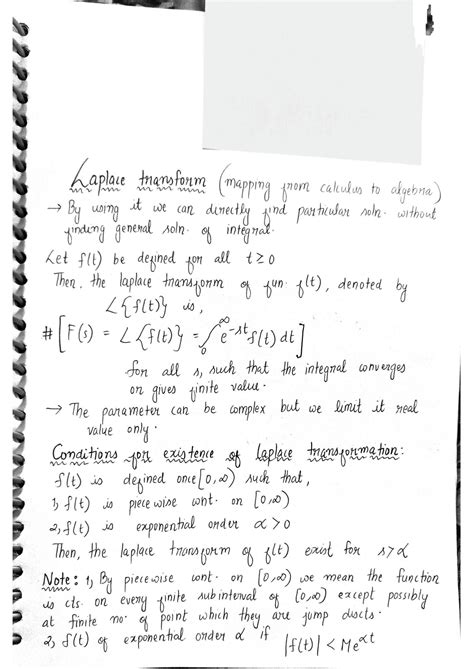 Laplace transform (mapping from calculus to algebra)
→ By using it we can directly find particular soln. without
finding general soln. of integral.
Let f(t) be defined for all t ≥ 0
Then, the laplace transform of fun. f(t), denoted by
L{f(t)} is,
# [F(s) = L{f(t)} = ∫₀^∞ e^{-st} f(t) dt]
for all s, such that the integral converges
or gives finite value.
→ The parameter can be complex but we limit it real
value only.
Conditions for existence of laplace transformation:
f(t) is defined once [0,∞) such that,
1, f(t) is piece wise cont. on [0,∞)
2, f(t) is exponential order α > 0
Then, the laplace transform of f(t) exist for s > α
Note: 1, By piecewise cont. on [0,∞) we mean the function
is cts. on every finite sub interval of [0,∞) except possibly
at finite no. of point which they are jump discts.
2, f(t) of exponential order α if |f(t)| < Me^{αt}